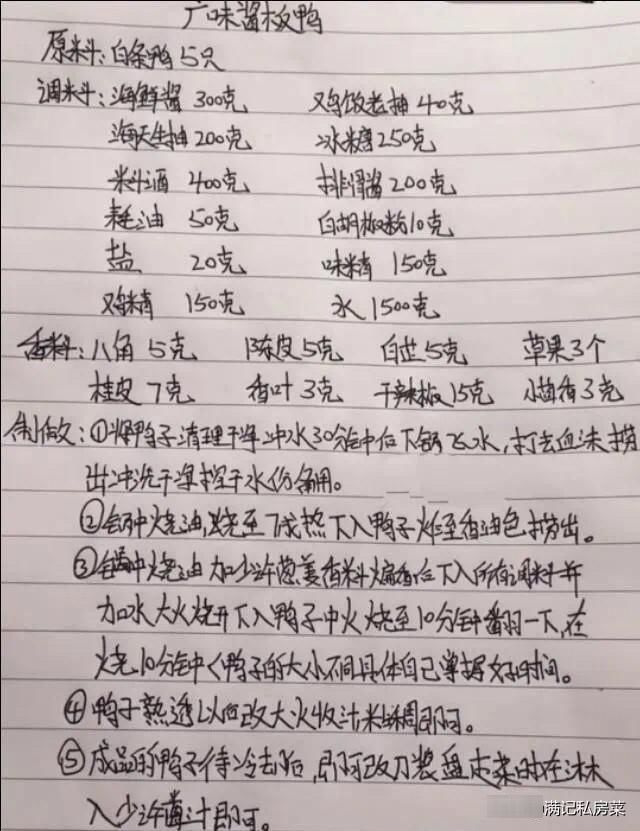 广味酱板鸭
原料:白条鸭5只
调料:海鲜酱 300克 鸡饭老抽 40克
海天生抽 200克 冰糖 250克
料酒 400克 排骨酱 200克
耗油 50克 白胡椒粉10克
盐 20克 味精 150克
鸡精 150克 水 1500克
香料:八角 5克 陈皮5克 白芷5克 草果3个
桂皮 7克 香叶 3克 干辣椒15克 小茴香3克
制做:①将鸭子清理干净冲水30分钟后下锅飞水,打去血沫捞
出冲洗干净控干水份备用。
②锅中烧油,烧至7成热下入鸭子炸至酱油色捞出。
③锅中烧油加少许葱姜香料煸香后下入所有调料并
加水大火烧开下入鸭子中火烧至10分钟翻一下,在
烧10分钟<鸭子的大小不同具体自己掌握好时间。
④鸭子熟透以后改大火收汁粘稠即可。
⑤成品的鸭子待冷却后,即可改刀装盘走菜时在淋
入少许酱汁即可。
满记私房菜